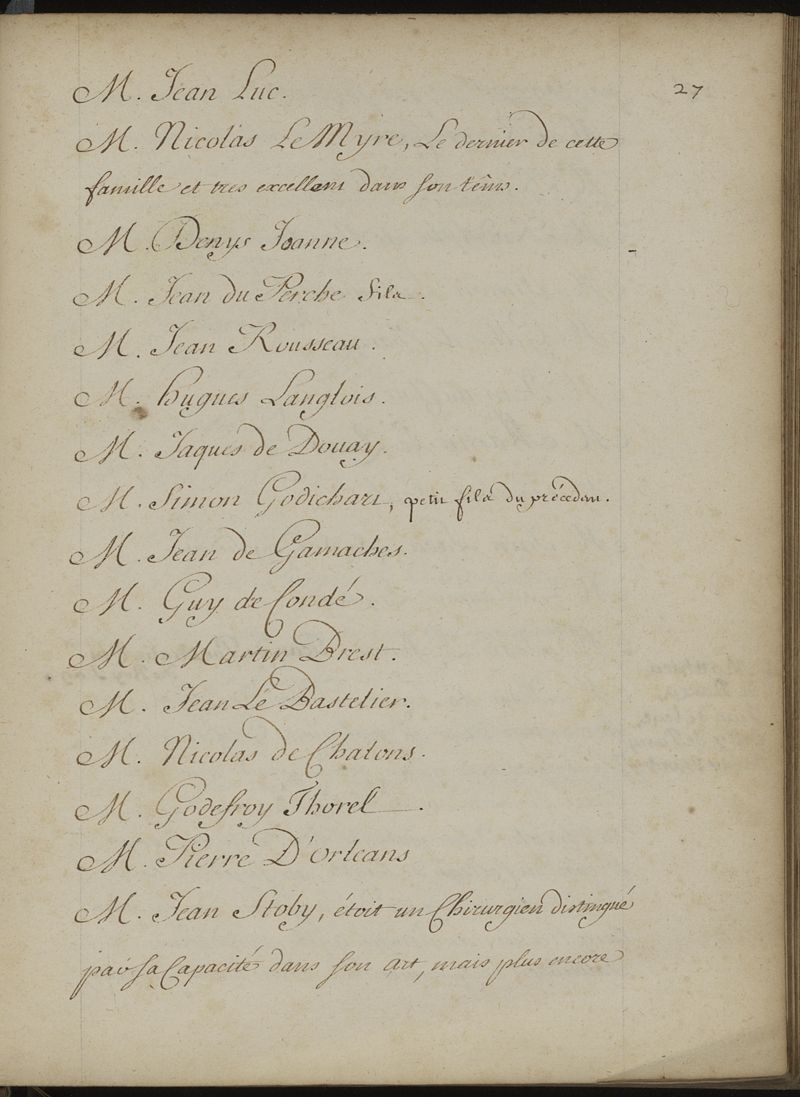 27
M. Jean Luc.
M. Nicolas Le Myre, Le dernier de cette
famille et tres excellent dans son têms.
M. Denys Joanne.
M. Jean du Perche fils.
M. Jean Rousseau.
M. hugues Langlois.
M. Jaques de Douay.
M. Simon Godichart, petit fils du précédan.
M. Jean de Gamaches.
M. Guy de Condé.
M. Martin Brest.
M. Jean Le Bastelier.
M. Nicolas de Chalons.
M. Godefroy Thorel.
M. Pierre D'orleans
M. Jean Stoby, étoit un Chirurgien distingué
par sa Capacité dans son art, mais plus encore